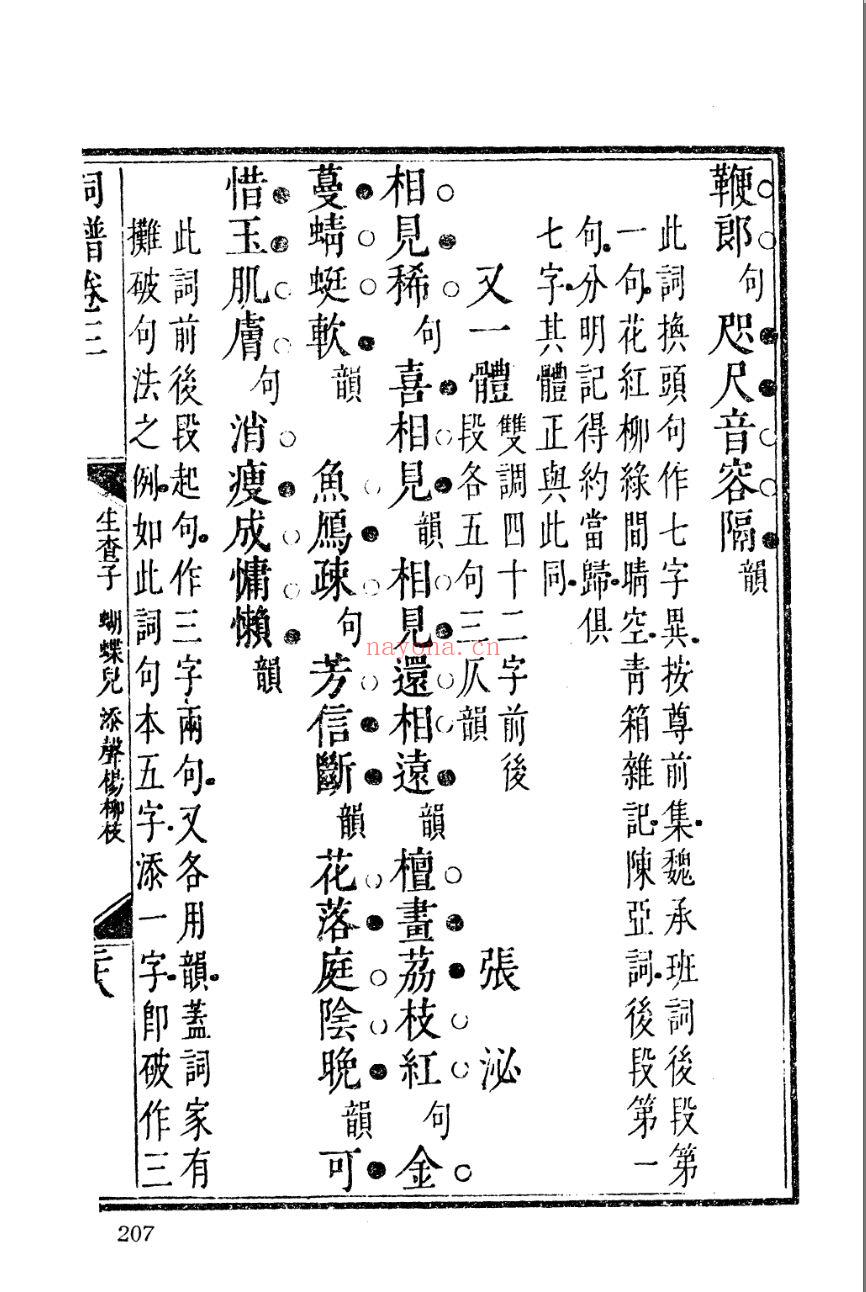 鞭郎句咫尺音容隔韻
此詞換頭句作七字異按尊前集魏承班詞後段第
一句花紅柳綠間晴空青箱雜記陳亞詞後段第一
句分明記得約當歸俱
七字其體正與此同
又一體雙調四十二字前後段各五句三仄韻張泌
相見稀句喜相見韻相見還相遠韻檀畫荔枝紅句金
蔓蜻蜓軟韻魚鴈疎句芳信斷韻花落庭陰晚韻可
惜玉肌膚句消瘦成慵懶韻
此詞前後段起句作三字兩句又各用韻蓋詞家有
攤破句法之例如此詞句本五字添一字即破作三
詞譜卷三 生查子 蝴蝶兒 添聲楊柳枝
nayona.cn
207